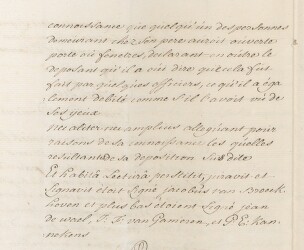 connoissance que quelqu'un des personnes
demeurant chez son pere auroit ouverte
porte ou fenetres, declarant en outre le
deposant qu'il a ouï dire que cela fut
fait par quelques officiers, ce qu'il a éga
lement debité comme s'il l'avoit vu de
ses yeux
nec aliter nec amplius alleguant pour
raisons de sa connoissance les quelles
resultantes de sa deposition Susdite
Et habita lectura perstitit juravit et
Signavit étoit Signé jacobus van Bronk
hoven et plus bas étoient Signé jean
de wael, J. F. van Gameren, et P. E. Kan
nekens